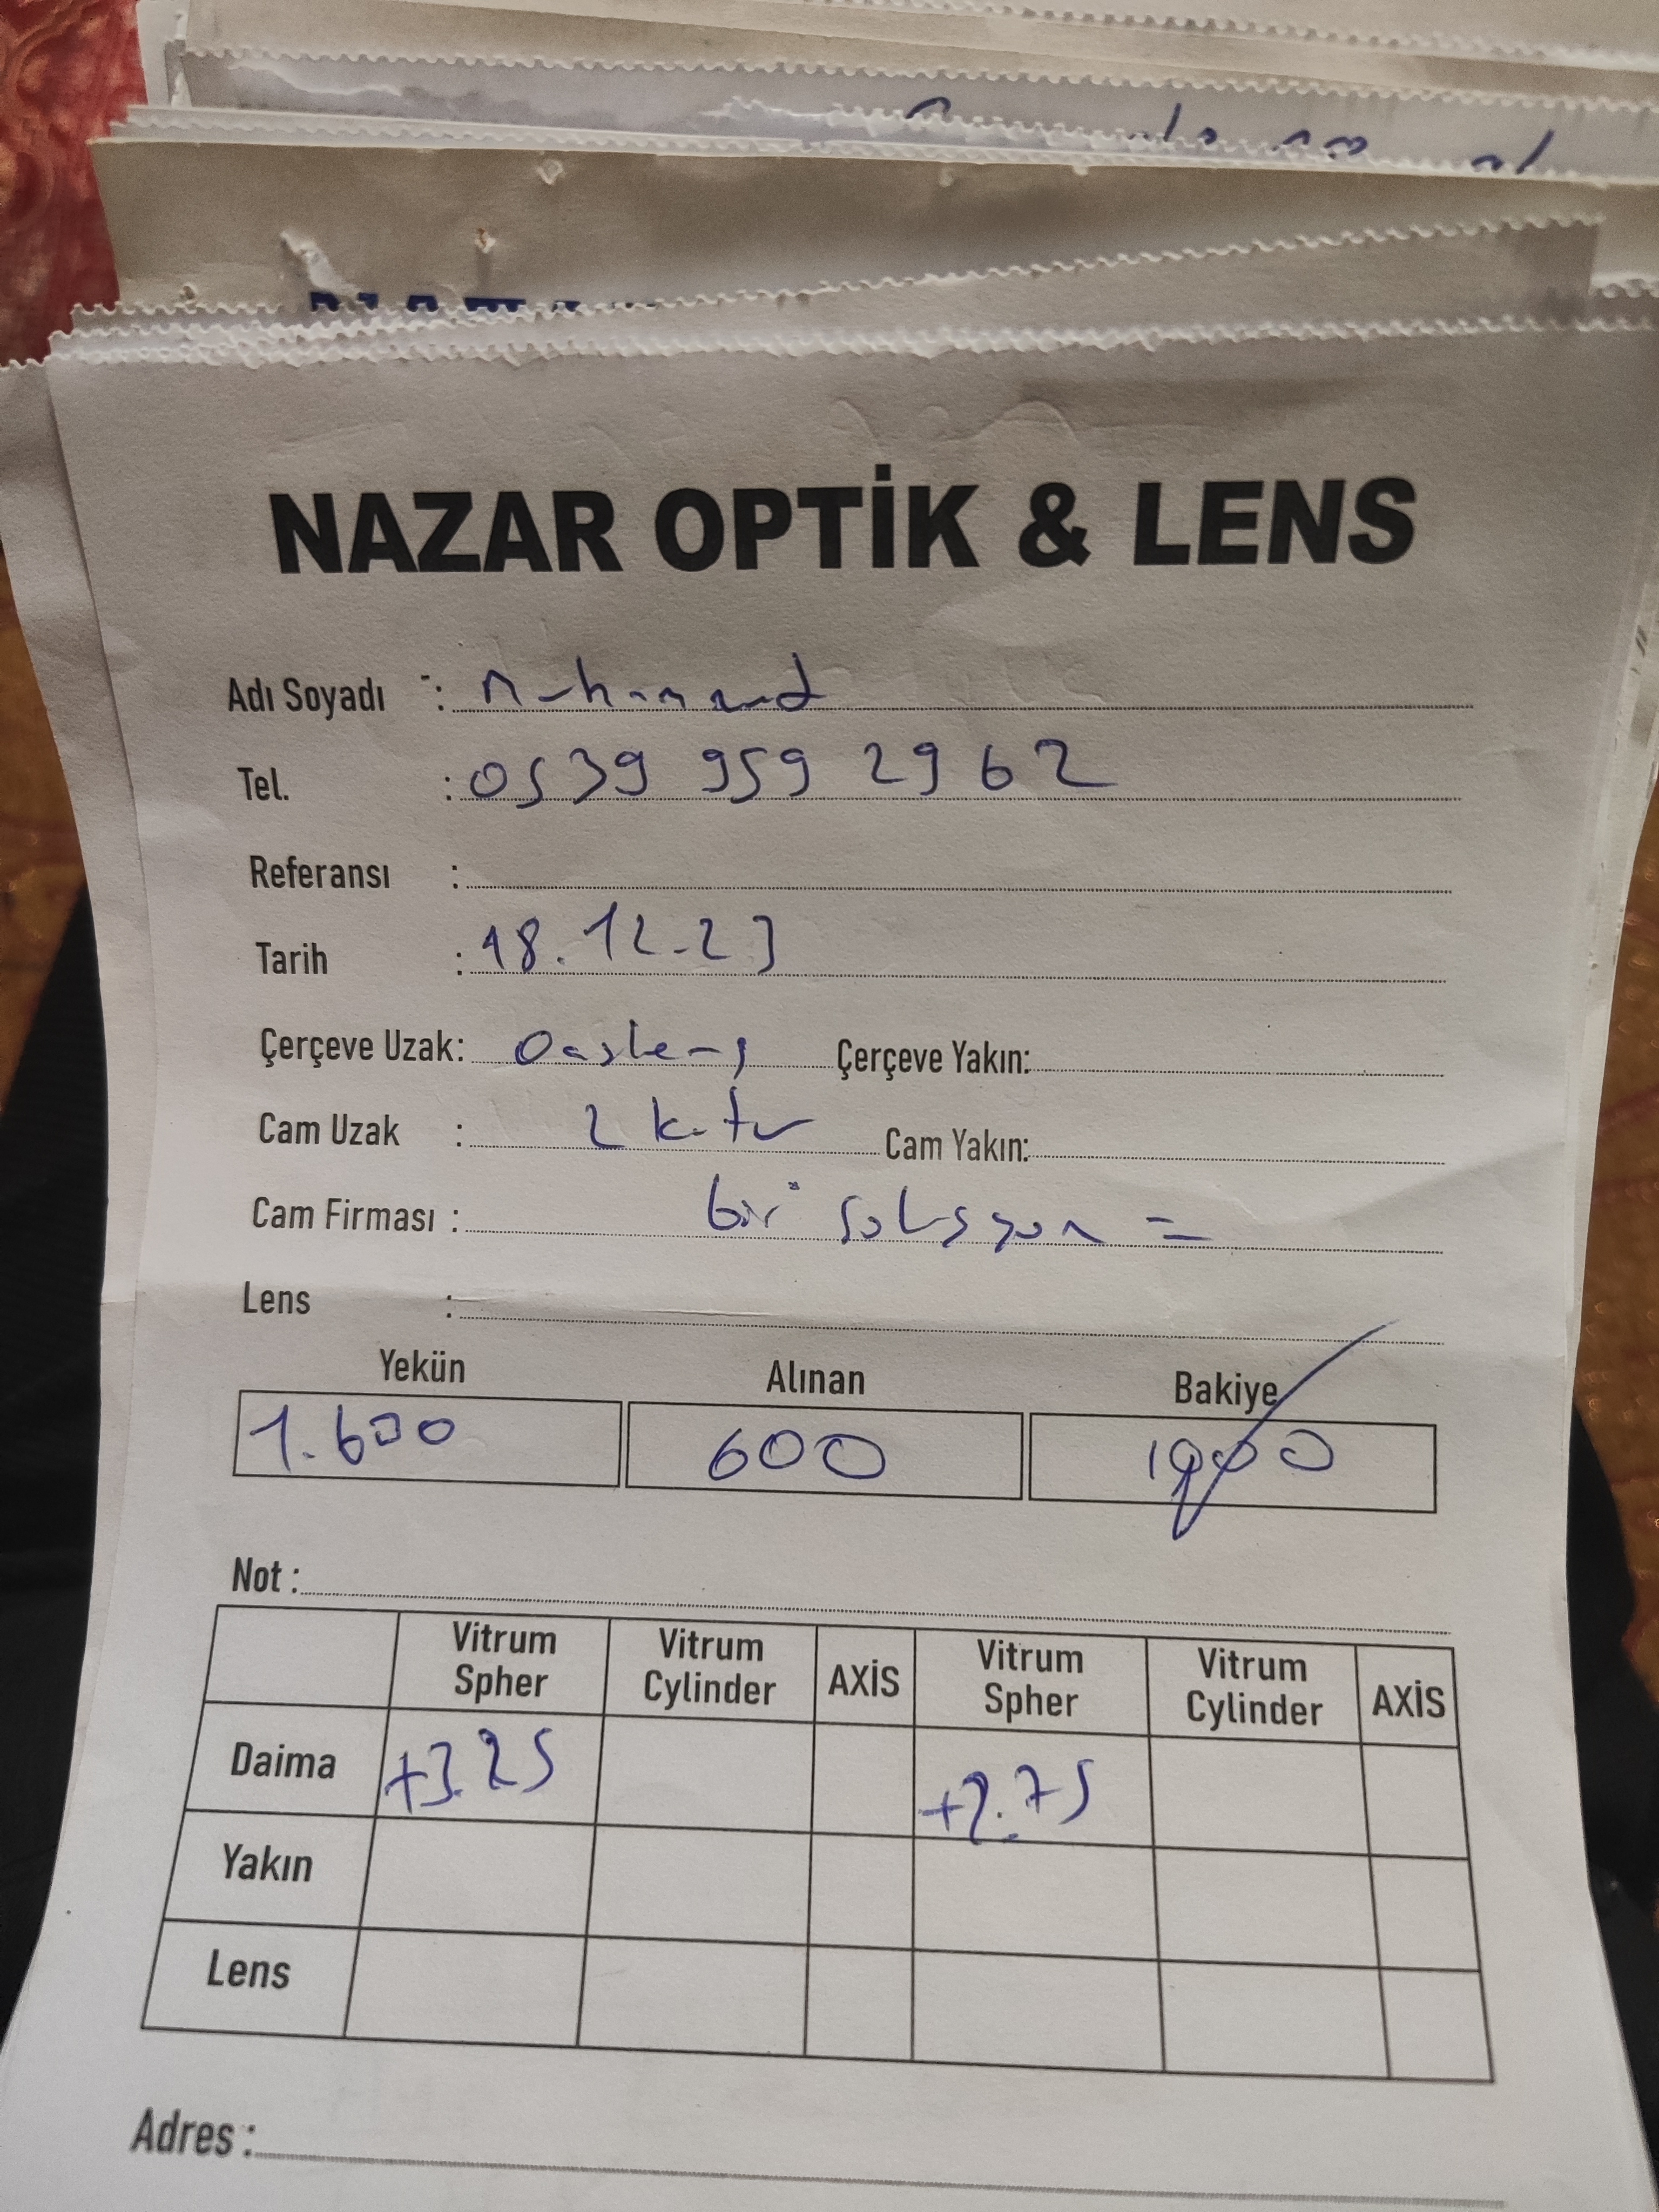 NAZAR OPTİK & LENS
Adı Soyadı : Muhammed
Tel. : 0539 959 29 62
Referansı :
Tarih : 18.12.23
Çerçeve Uzak: Çerçeve Yakın:
Cam Uzak : 2 kutu Cam Yakın:
Cam Firması : bir solusyon =
Lens :
Yekün Alınan Bakiye
1.600 600 1000
Not :
Vitrum Spher Vitrum Cylinder AXİS Vitrum Spher Vitrum Cylinder AXİS
Daima +3.25 +2.75
Yakın
Lens
Adres :